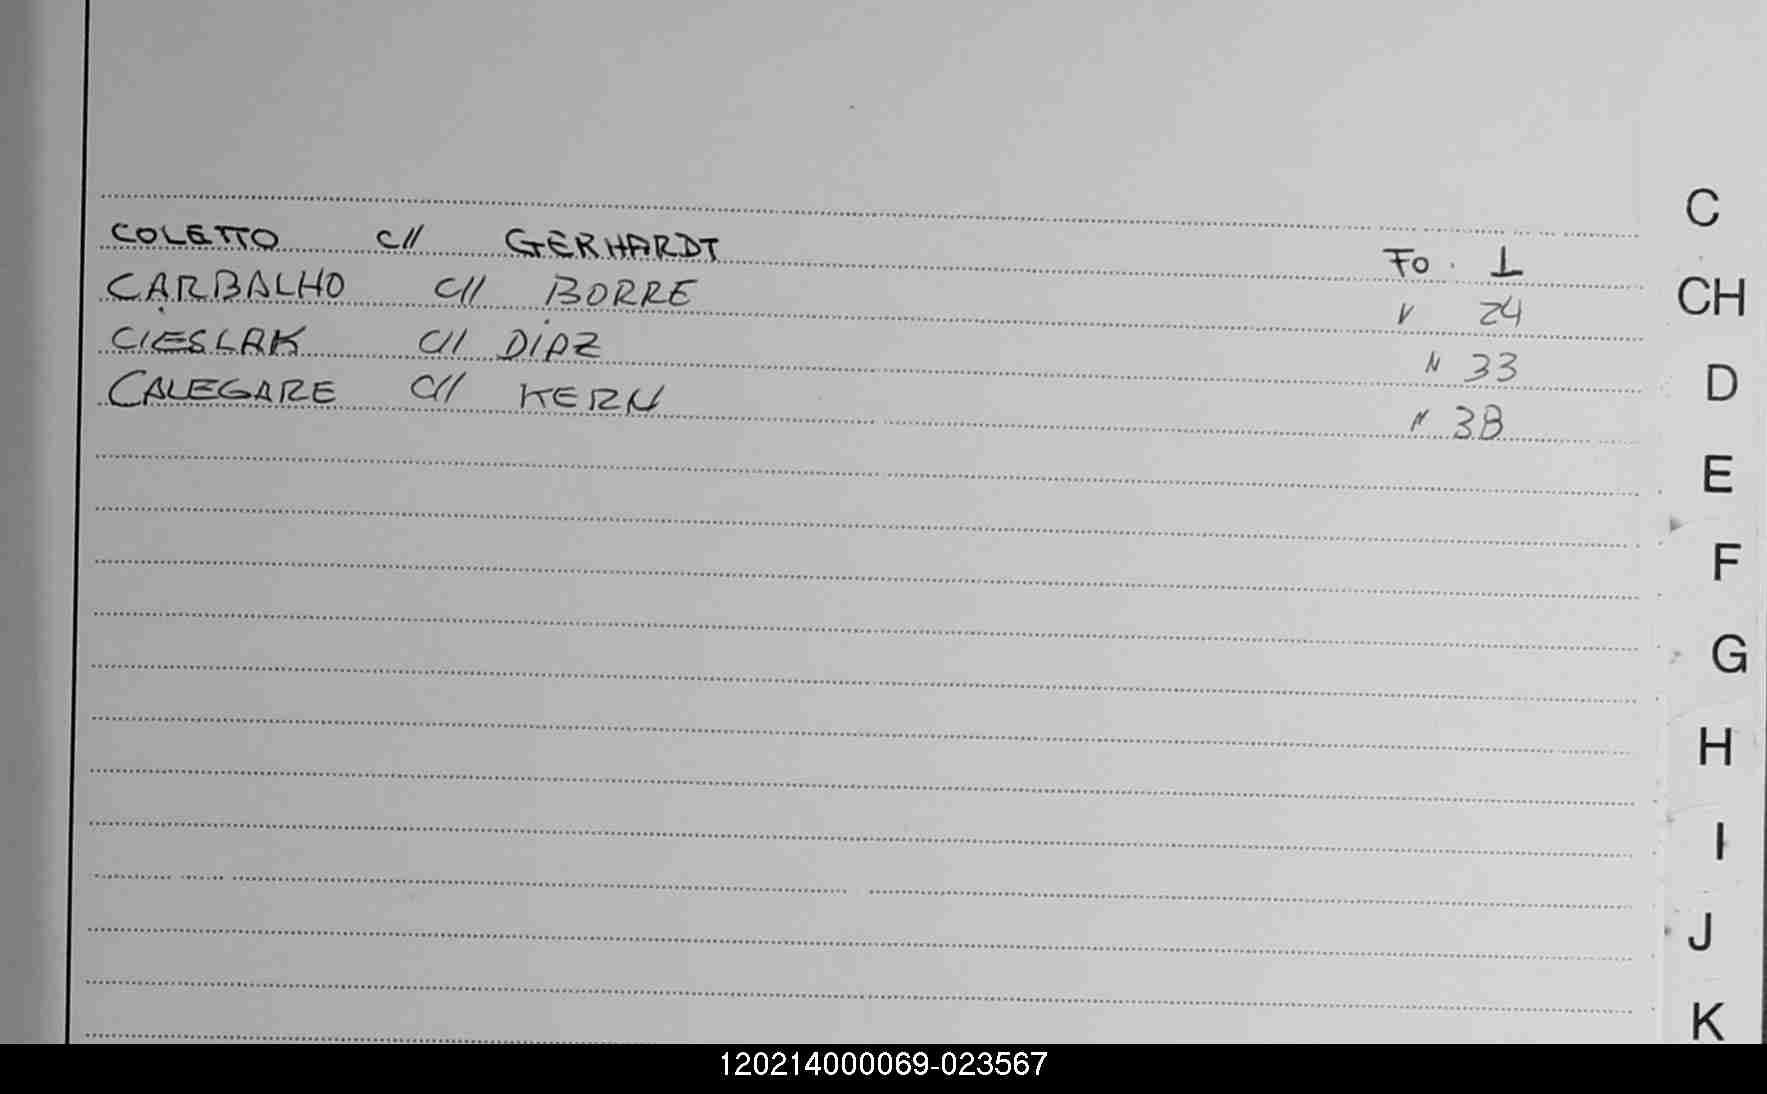 C
COLETTO C// GERHARDT Fo. 1
CH
CARBALHO C// BORRE " 24
CIESLAK C// DÍAZ " 33
D
CALEGARE C// KERN " 38
E
F
G
H
I
J
K
120214000069-023567